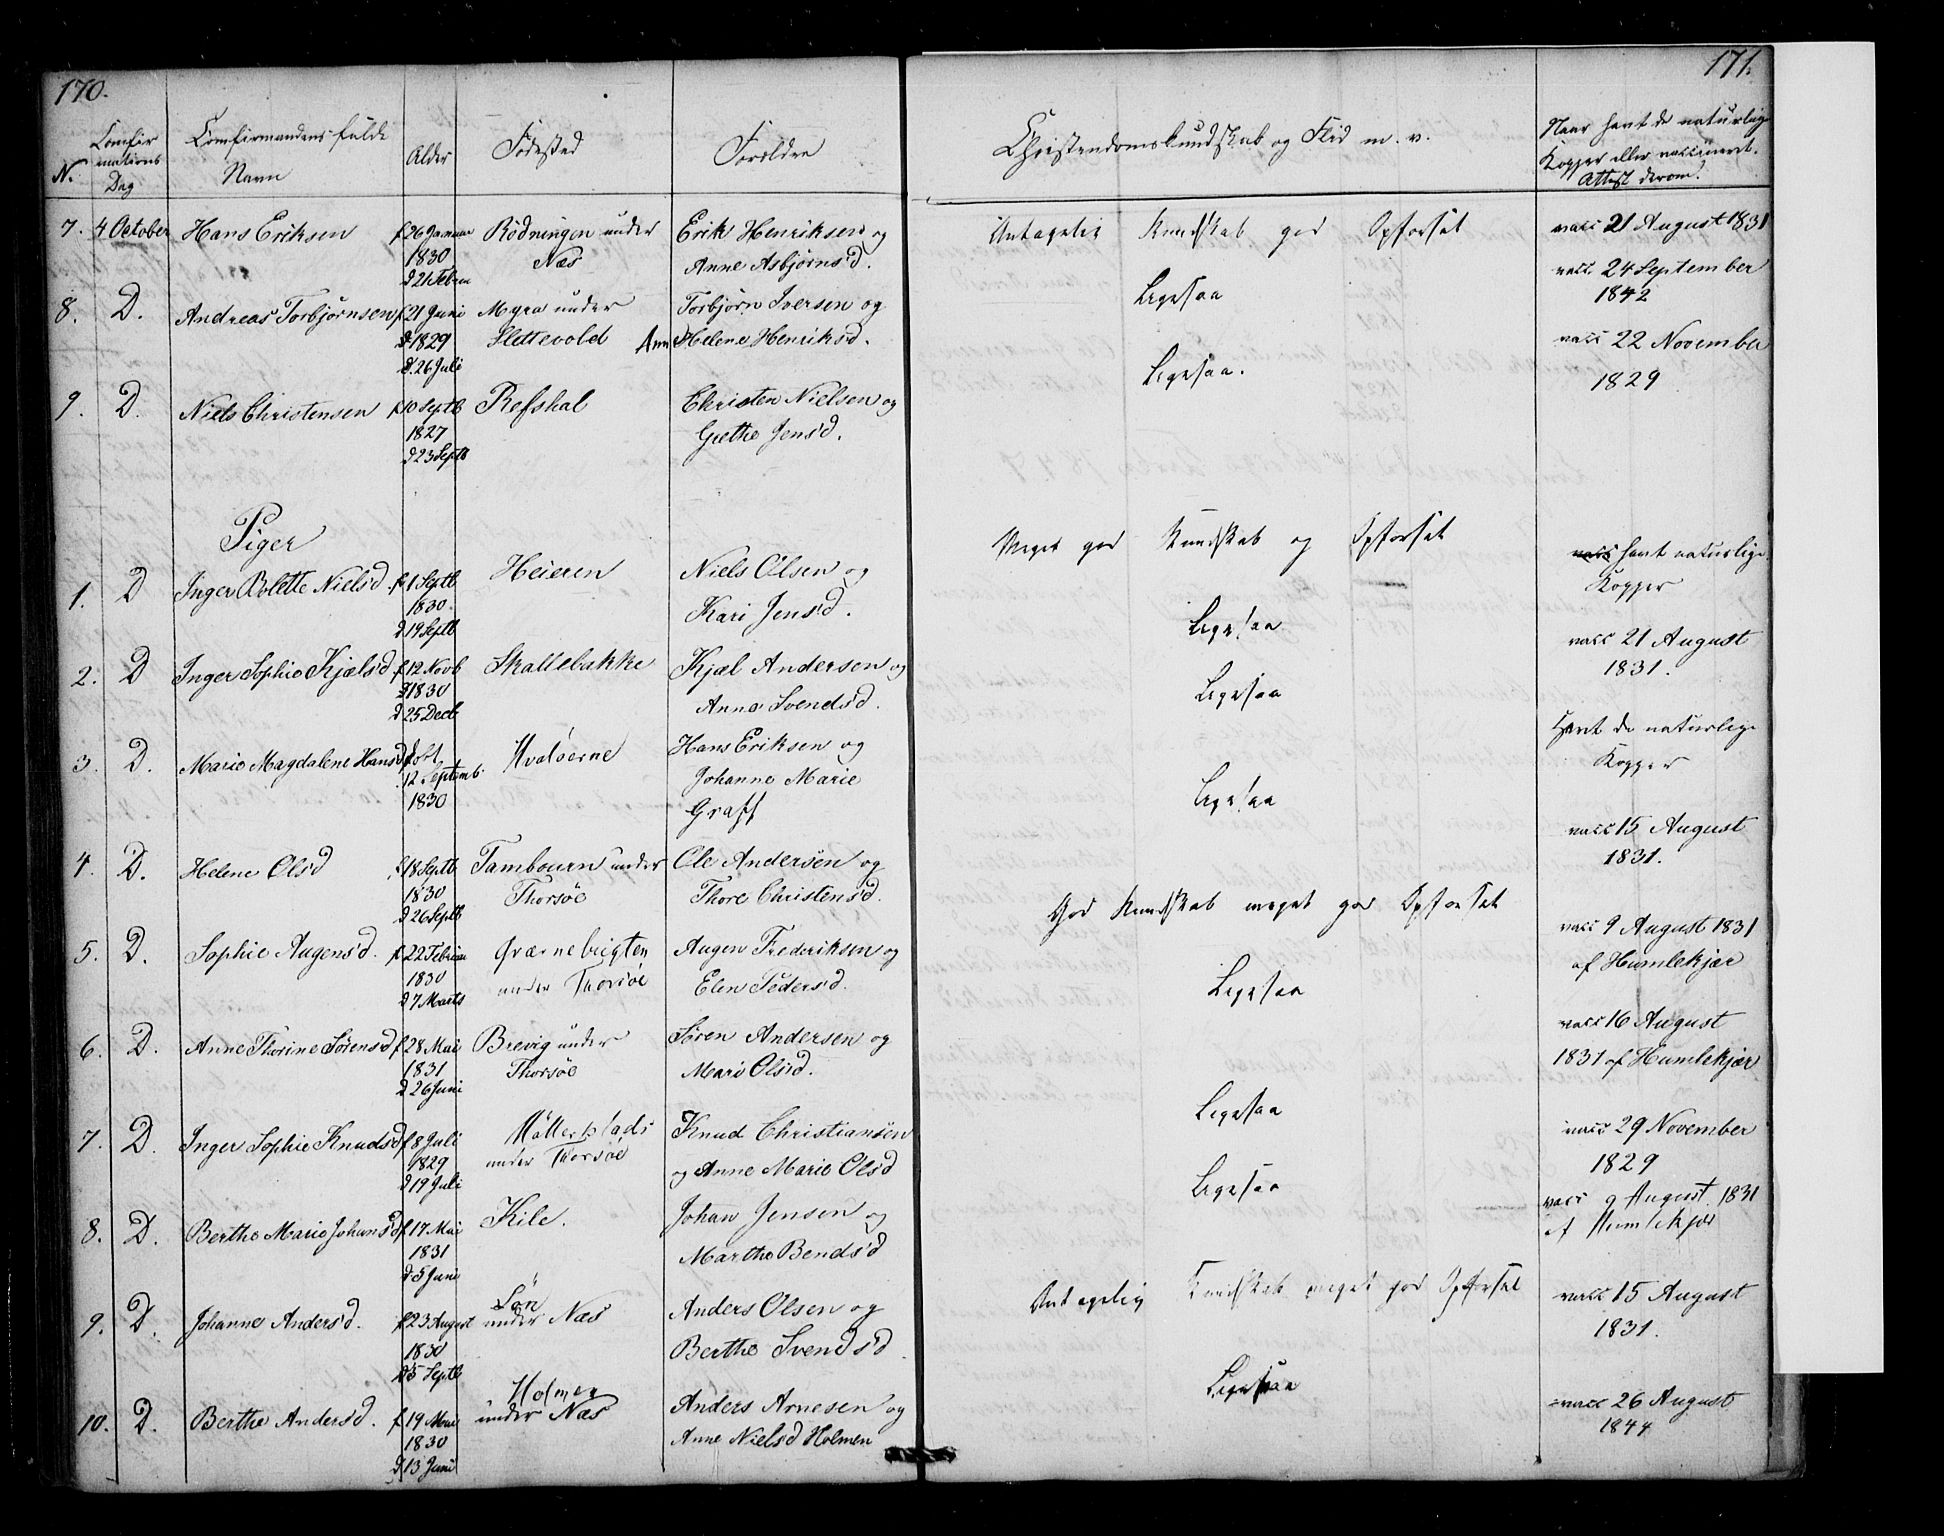 170.
171.
N.
Confir
mations
Dag
Confirmandens fulde
Navn
Alder
Fødested
Forældre
Christendomskundskab og Flid m. v.
Naar havt de naturlige
Kopper eller vaccineret.
Attest derom.
7. 4 October Hans Eriksen f 26 Januar Rødningen under Erik Henriksen og Antagelig Kundskab god Opførsel vacc 21 August 1831
1830 Næs Anne Asbjørnsd.
d 21 Febru
8. D. Andreas Torbjørnsen f 21 Juni Myra under Torbjørn Iversen og Ligesaa vacc 24 September
1829 Slettevold Anne Helene Henriksd. 1842
d. 26 Juli
9. D. Niels Christensen f 10 Septb Refshal Christen Nielsen og Ligesaa. vacc 22 November
1827 Grethe Jensd. 1829
d 23 Septb
Piger
1. D Inger Bolette Nielsd. f 1 Septb Heieren Niels Olsen og Meget god Kundskab og Opførsel vacc havt naturlige
1830. Kari Jensd. Kopper
d 19 Septb
2. D Inger Sophie Kjælsd f 12 Novb Skallebakke Kjæl Andersen og Ligesaa vacc 21 August
1830 Anne Svendsd. 1831.
d 25 Decb
3. D. Marie Magdalene Hansd Hvaløerne Hans Eriksen og Ligesaa Havt de naturlige
12 Septemb. Johanne Marie Kopper
1830 Graff
4. D. Helene Olsd f 18 Septb Tambourn under Ole Andersen og Ligesaa vacc 15 August
1830 Thorsøe Thore Christensd. 1831.
d 26 Septb
5. D. Sophie Augensd. f 22 Februar under Thorsøe Augen Frederiksen og God Kundskab meget god Opførsel vacc 9 August 1831
1830 Elen Pedersd. af Humlekjær
d 7 Marts
6. D. Anne Thorine Sørensd f 28 Mai Brevig under Søren Andersen og Ligesaa vacc 16 August
1831 Thorsøe Mari Olsd. 1831 af Humlekjær
d 26 Juni
7. D. Inger Sophie Knudsd f 8 Juli Møllerplads Knud Christiansen Ligesaa vacc 29 November
1829 under Thorsøe og Anne Marie Olsd 1829
d 19 Juli
8. D. Berthe Marie Johansd f 17 Mai Kile. Johan Jensen og Ligesaa vacc 9 August 1831
1831 Marthe Bendsd af Humlekjær
d 5 Juni
9. D. Johanne Andersd. f 23 August under Næs Anders Olsen og Antagelig Kundskab meget god Opførsel vacc 15 August
1830 Berthe Svendsd 1831.
d 5 Septb
10. D. Berthe Andersd. f 19 Mai Holmen Anders Arnesen og Ligesaa vacc 26 August
1830 under Næs Anne Nielsd Holmen 1844
d 13 Juni